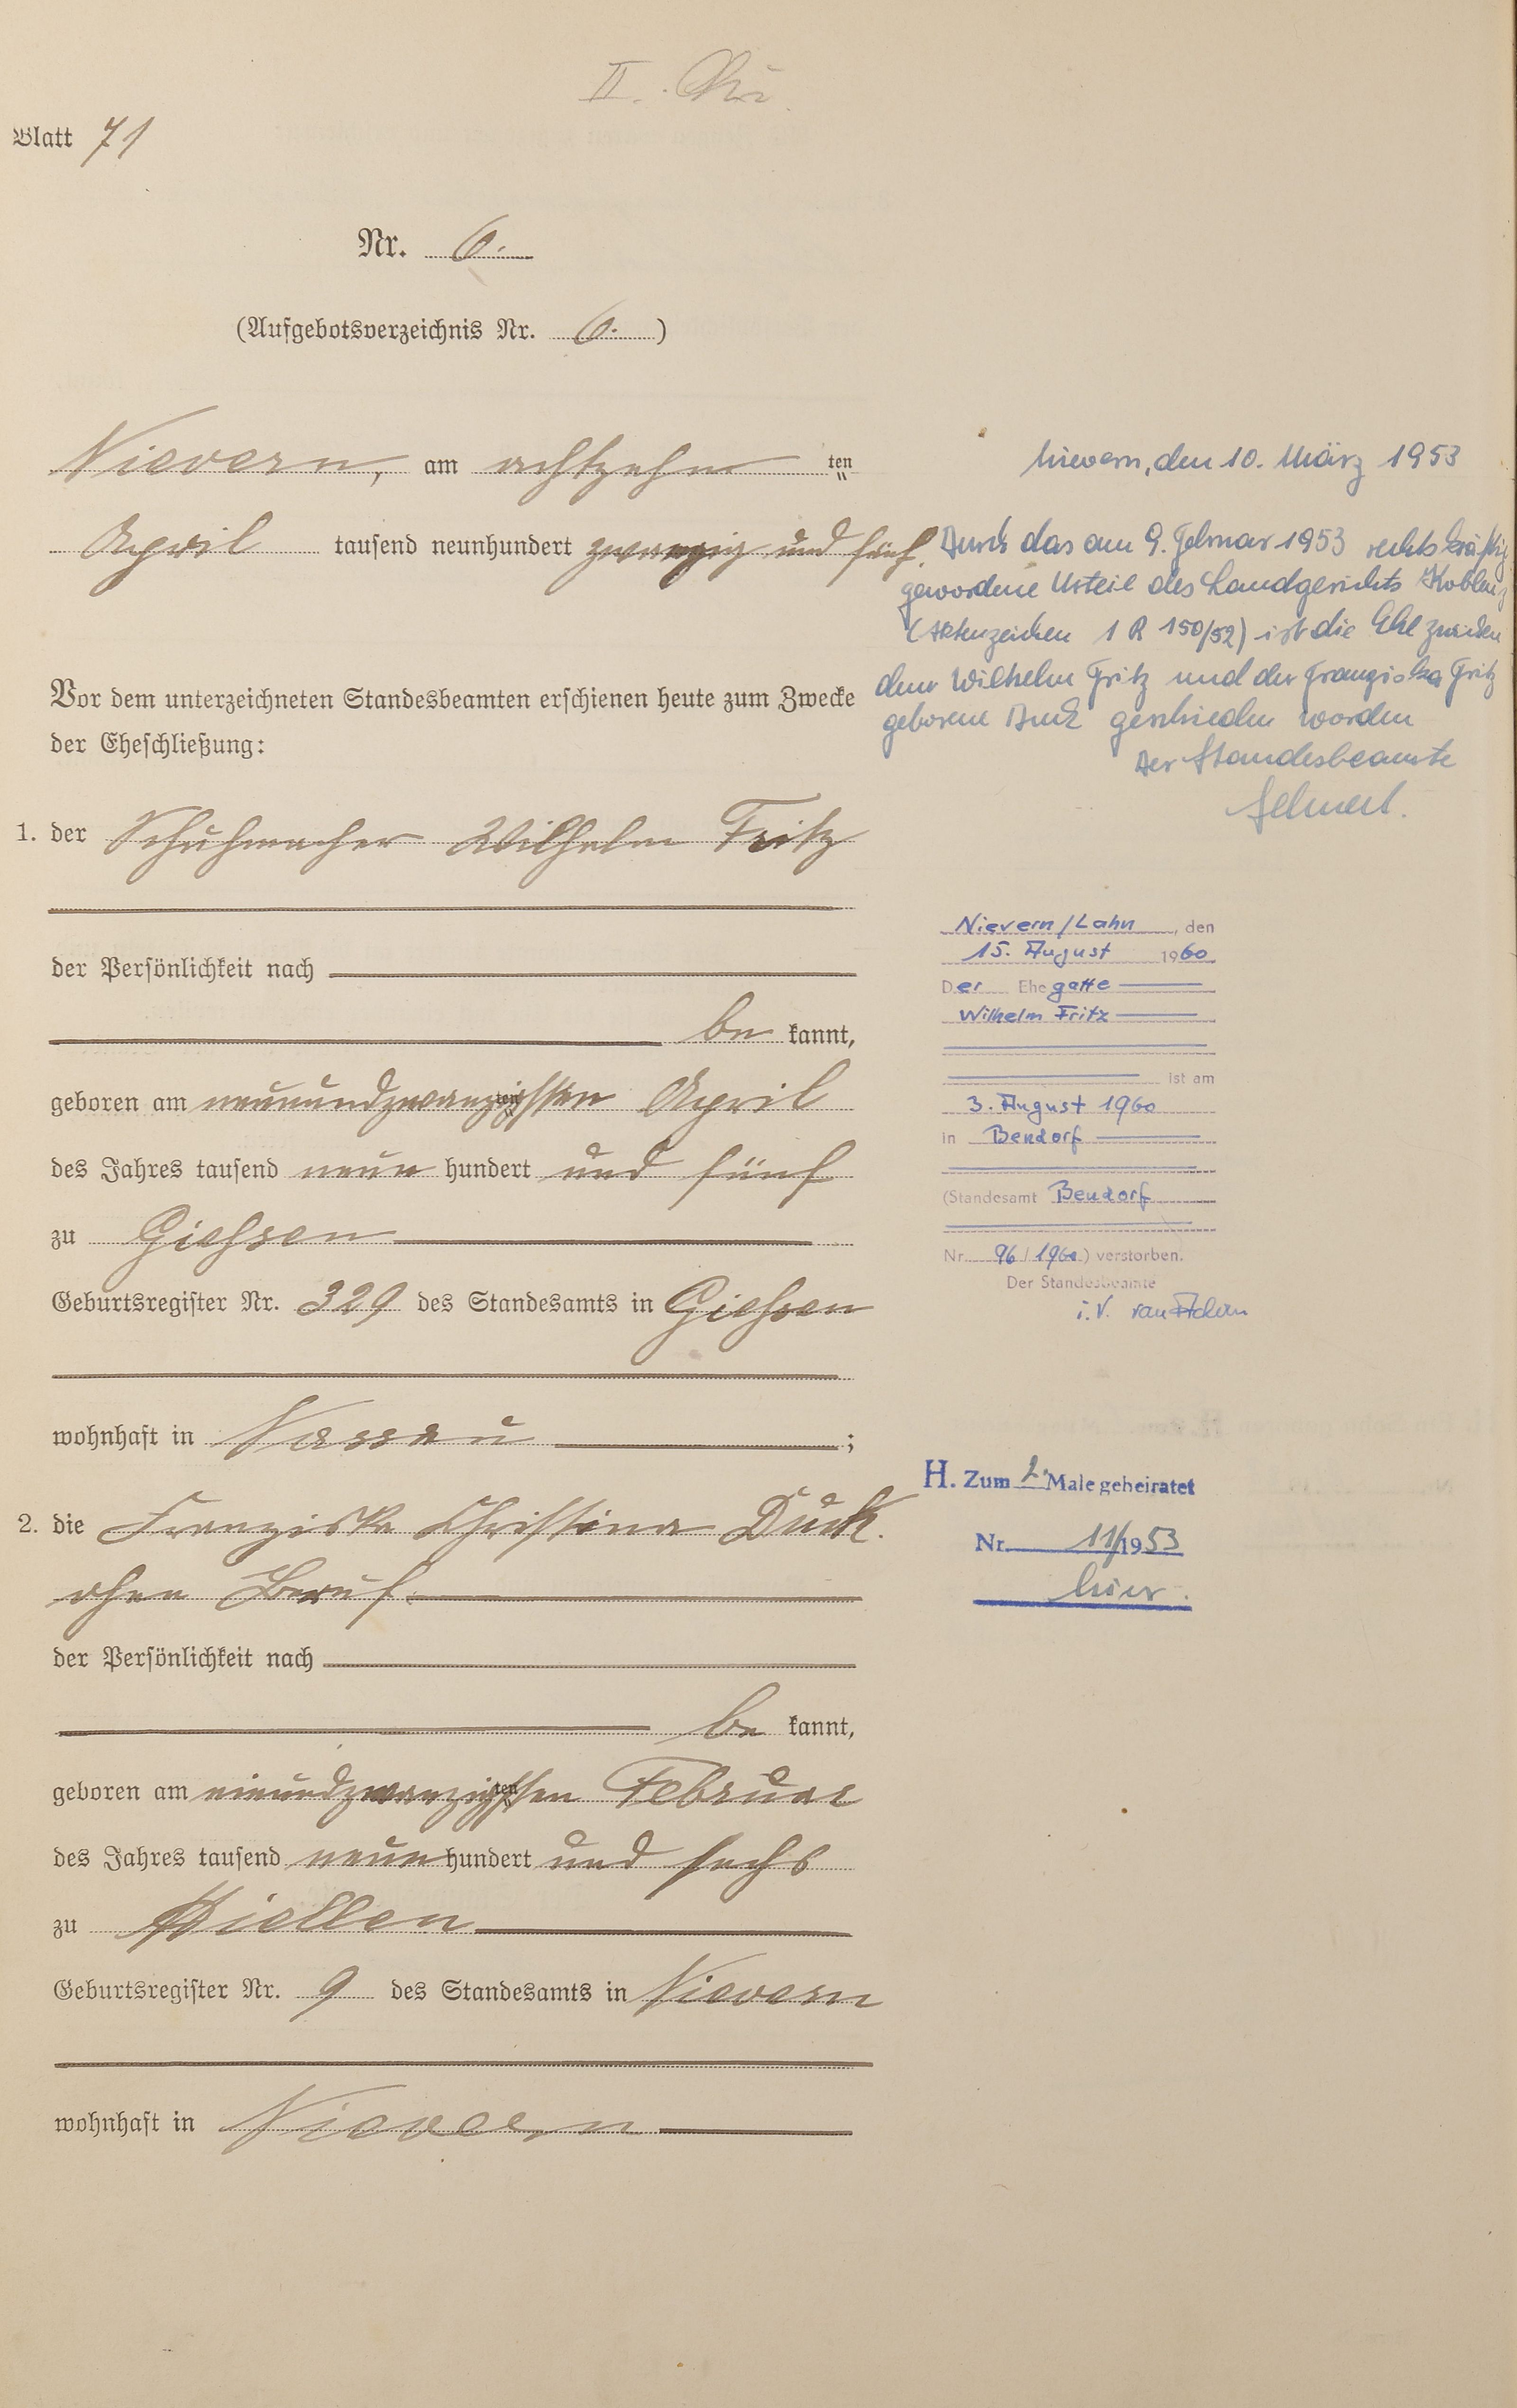 II.
Blatt 71
Nr. 6.
(Aufgebotsverzeichnis Nr. 6.)
Nievern, am achtzehn ten
April tausend neunhundert zwanzig und fünf.
Vor dem unterzeichneten Standesbeamten erschienen heute zum Zwecke
der Eheschließung:
1. der Schuhmacher Wilhelm Fritz
der Persönlichkeit nach
be kannt,
geboren am neunundzwanzigsten April
des Jahres tausend neun hundert und fünf
zu Giessen
Geburtsregister Nr. 329 des Standesamts in Giessen
wohnhaft in Nassau ;
2. die Franziska Christina Duck.
ohne Beruf.
der Persönlichkeit nach
be kannt,
geboren am einundzwanzigsten Februar
des Jahres tausend neun hundert und sechs
zu Miellen
Geburtsregister Nr. 9 des Standesamts in Nievern
wohnhaft in Nievern
Nievern, den 10. März 1953
Durch das am 9. Februar 1953 rechtskräftig
gewordene Urteil des Landgerichts Koblenz
(Aktenzeichen 1 R 150/52) ist die Ehe zwischen
dem Wilhelm Fritz und der Franziska Fritz
geborene Duck geschieden worden
Der Standesbeamte
Nievern/Lahn, den
15. August 1960
Der Ehegatte
Wilhelm Fritz
ist am
3. August 1960
in Bendorf
(Standesamt Bendorf
Nr. 96/1960) verstorben.
Der Standesbeamte
i.V.
H. Zum 2. Male geheiratet
Nr. 11/1953
hier.